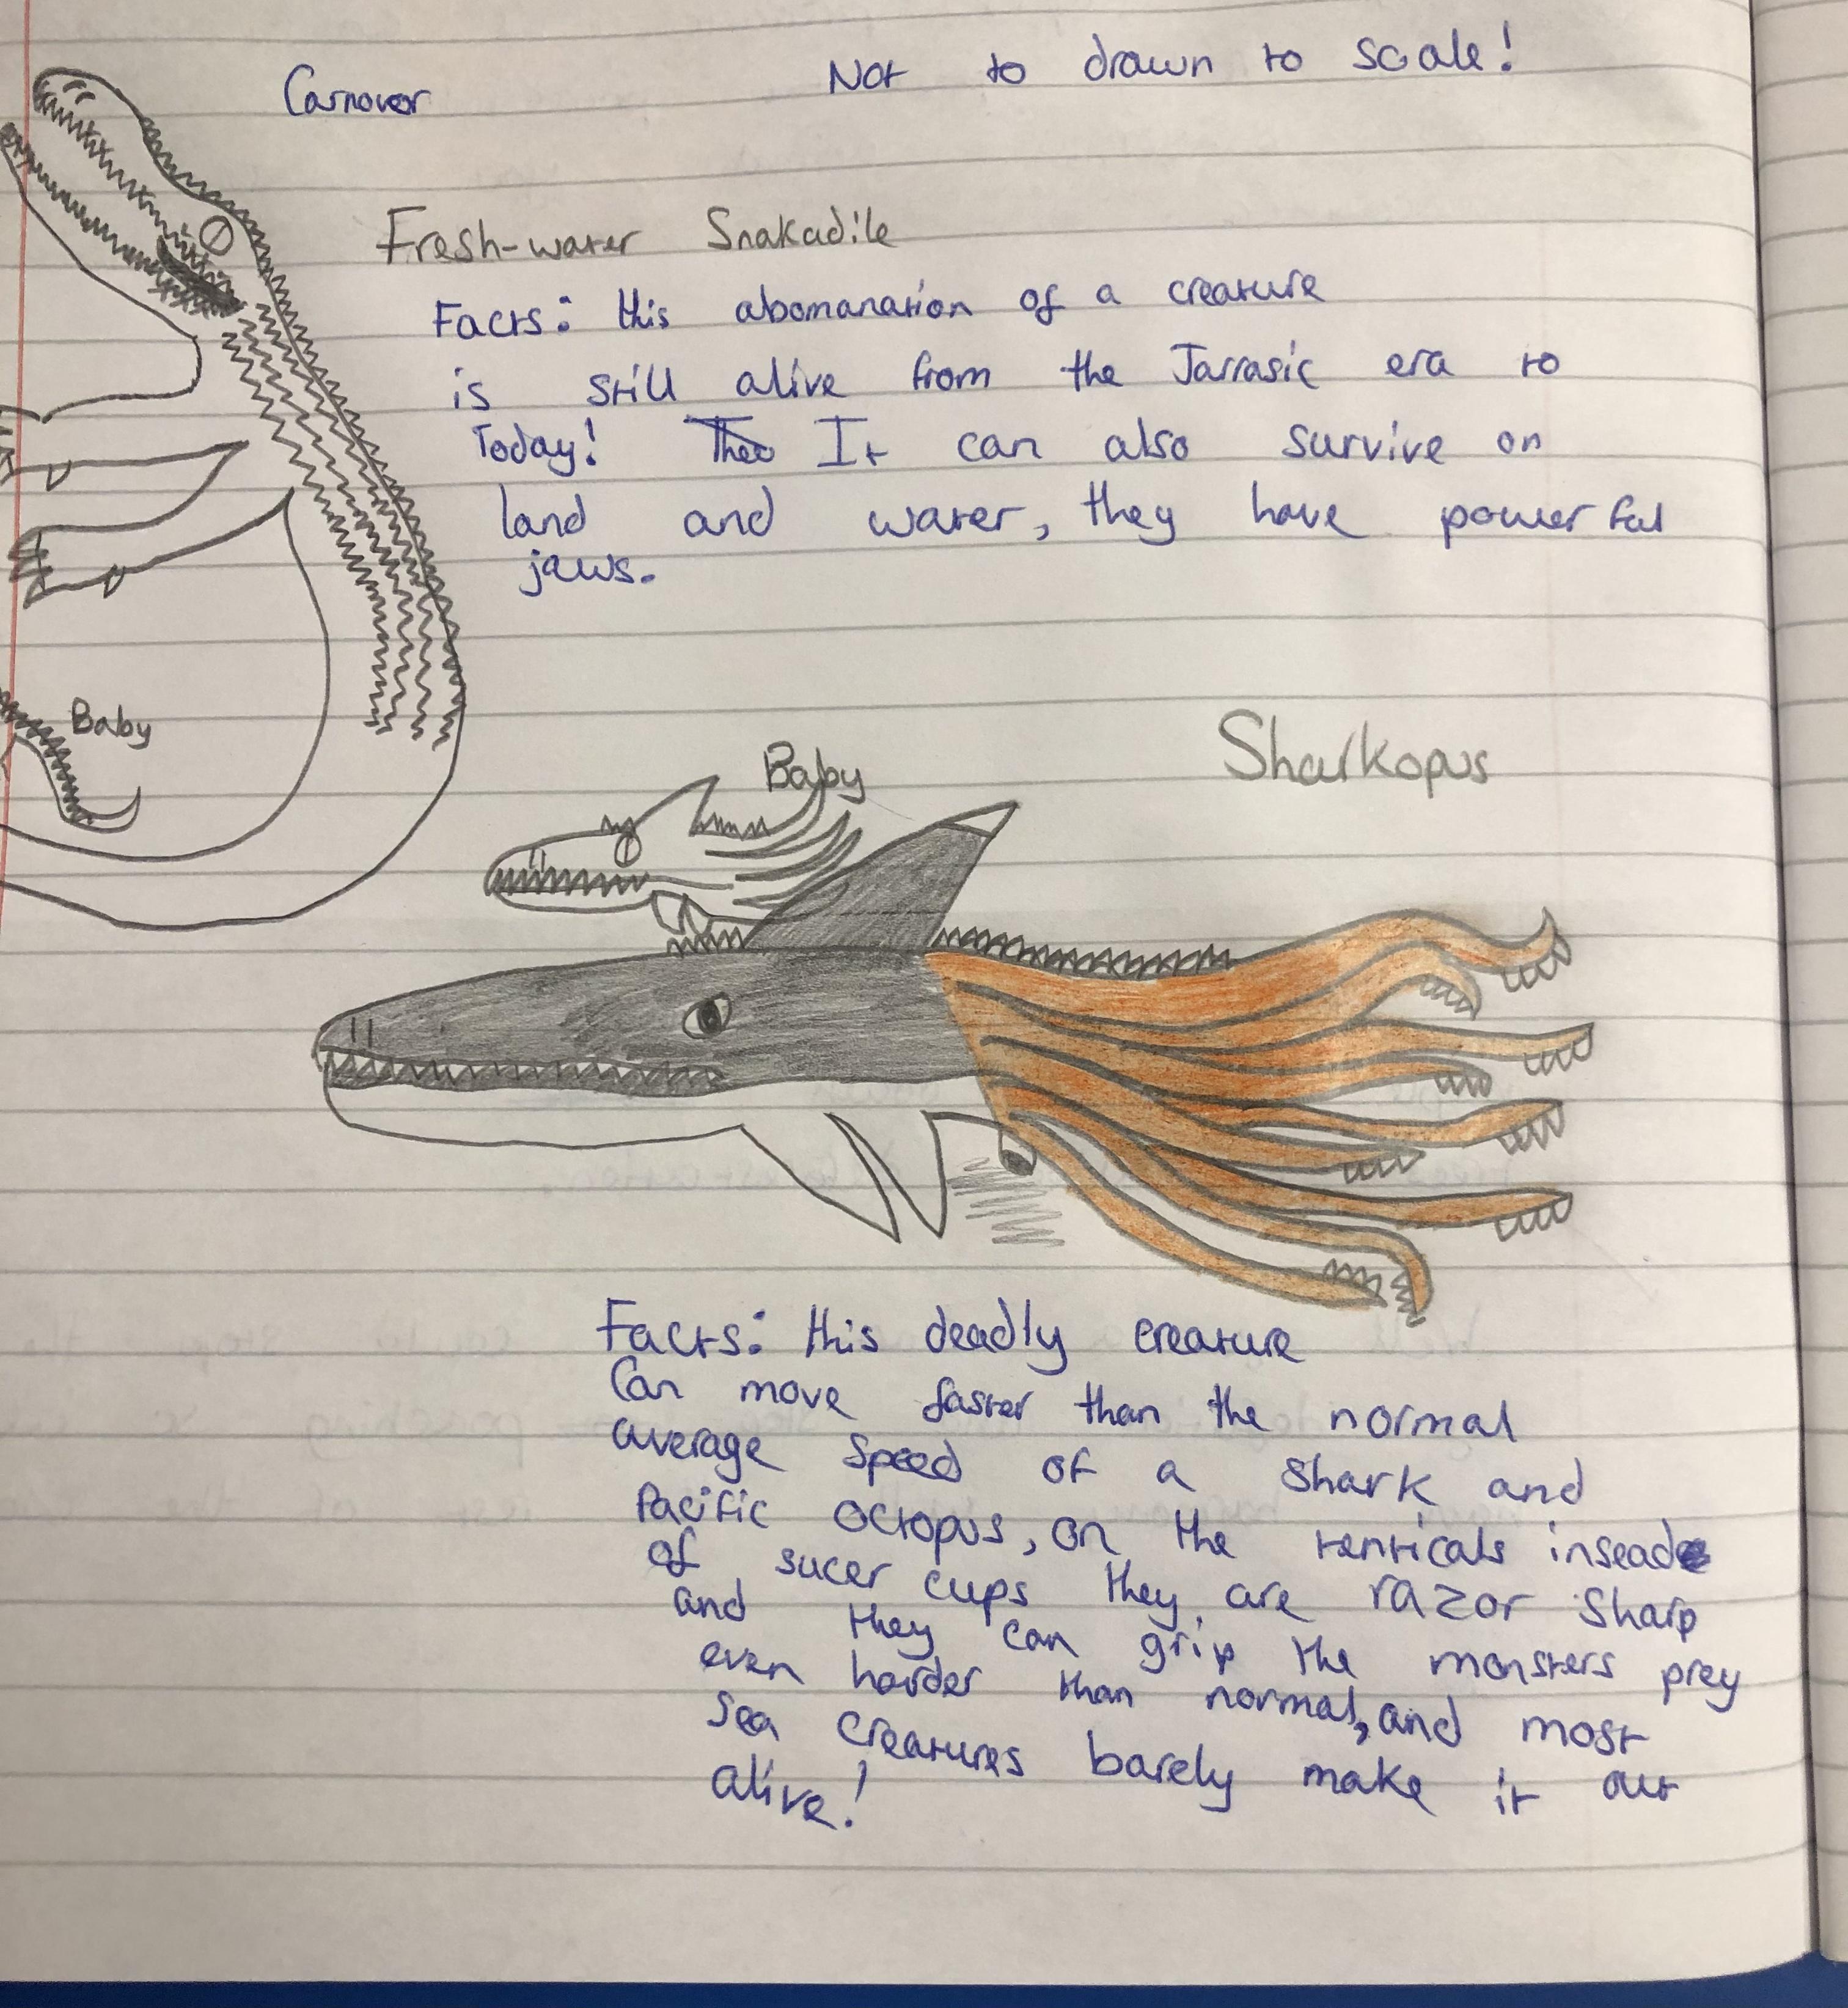 Not to drawn to scale!
Carnover
Fresh-water Snakadile
Facts: this abomanation of a creature
is still alive from the Jarrasic era to
Today! It can also survive on
land and water, they have powerful
jaws.
Baby
Baby
Sharkopus
Facts: this deadly creature
Can move faster than the normal
average speed of a shark and
Pacific octopus, on the tenticals insead
of sucer cups they are razor sharp
and they can grip the monsters prey
even harder than normal, and most
sea creatures barely make it out
alive!